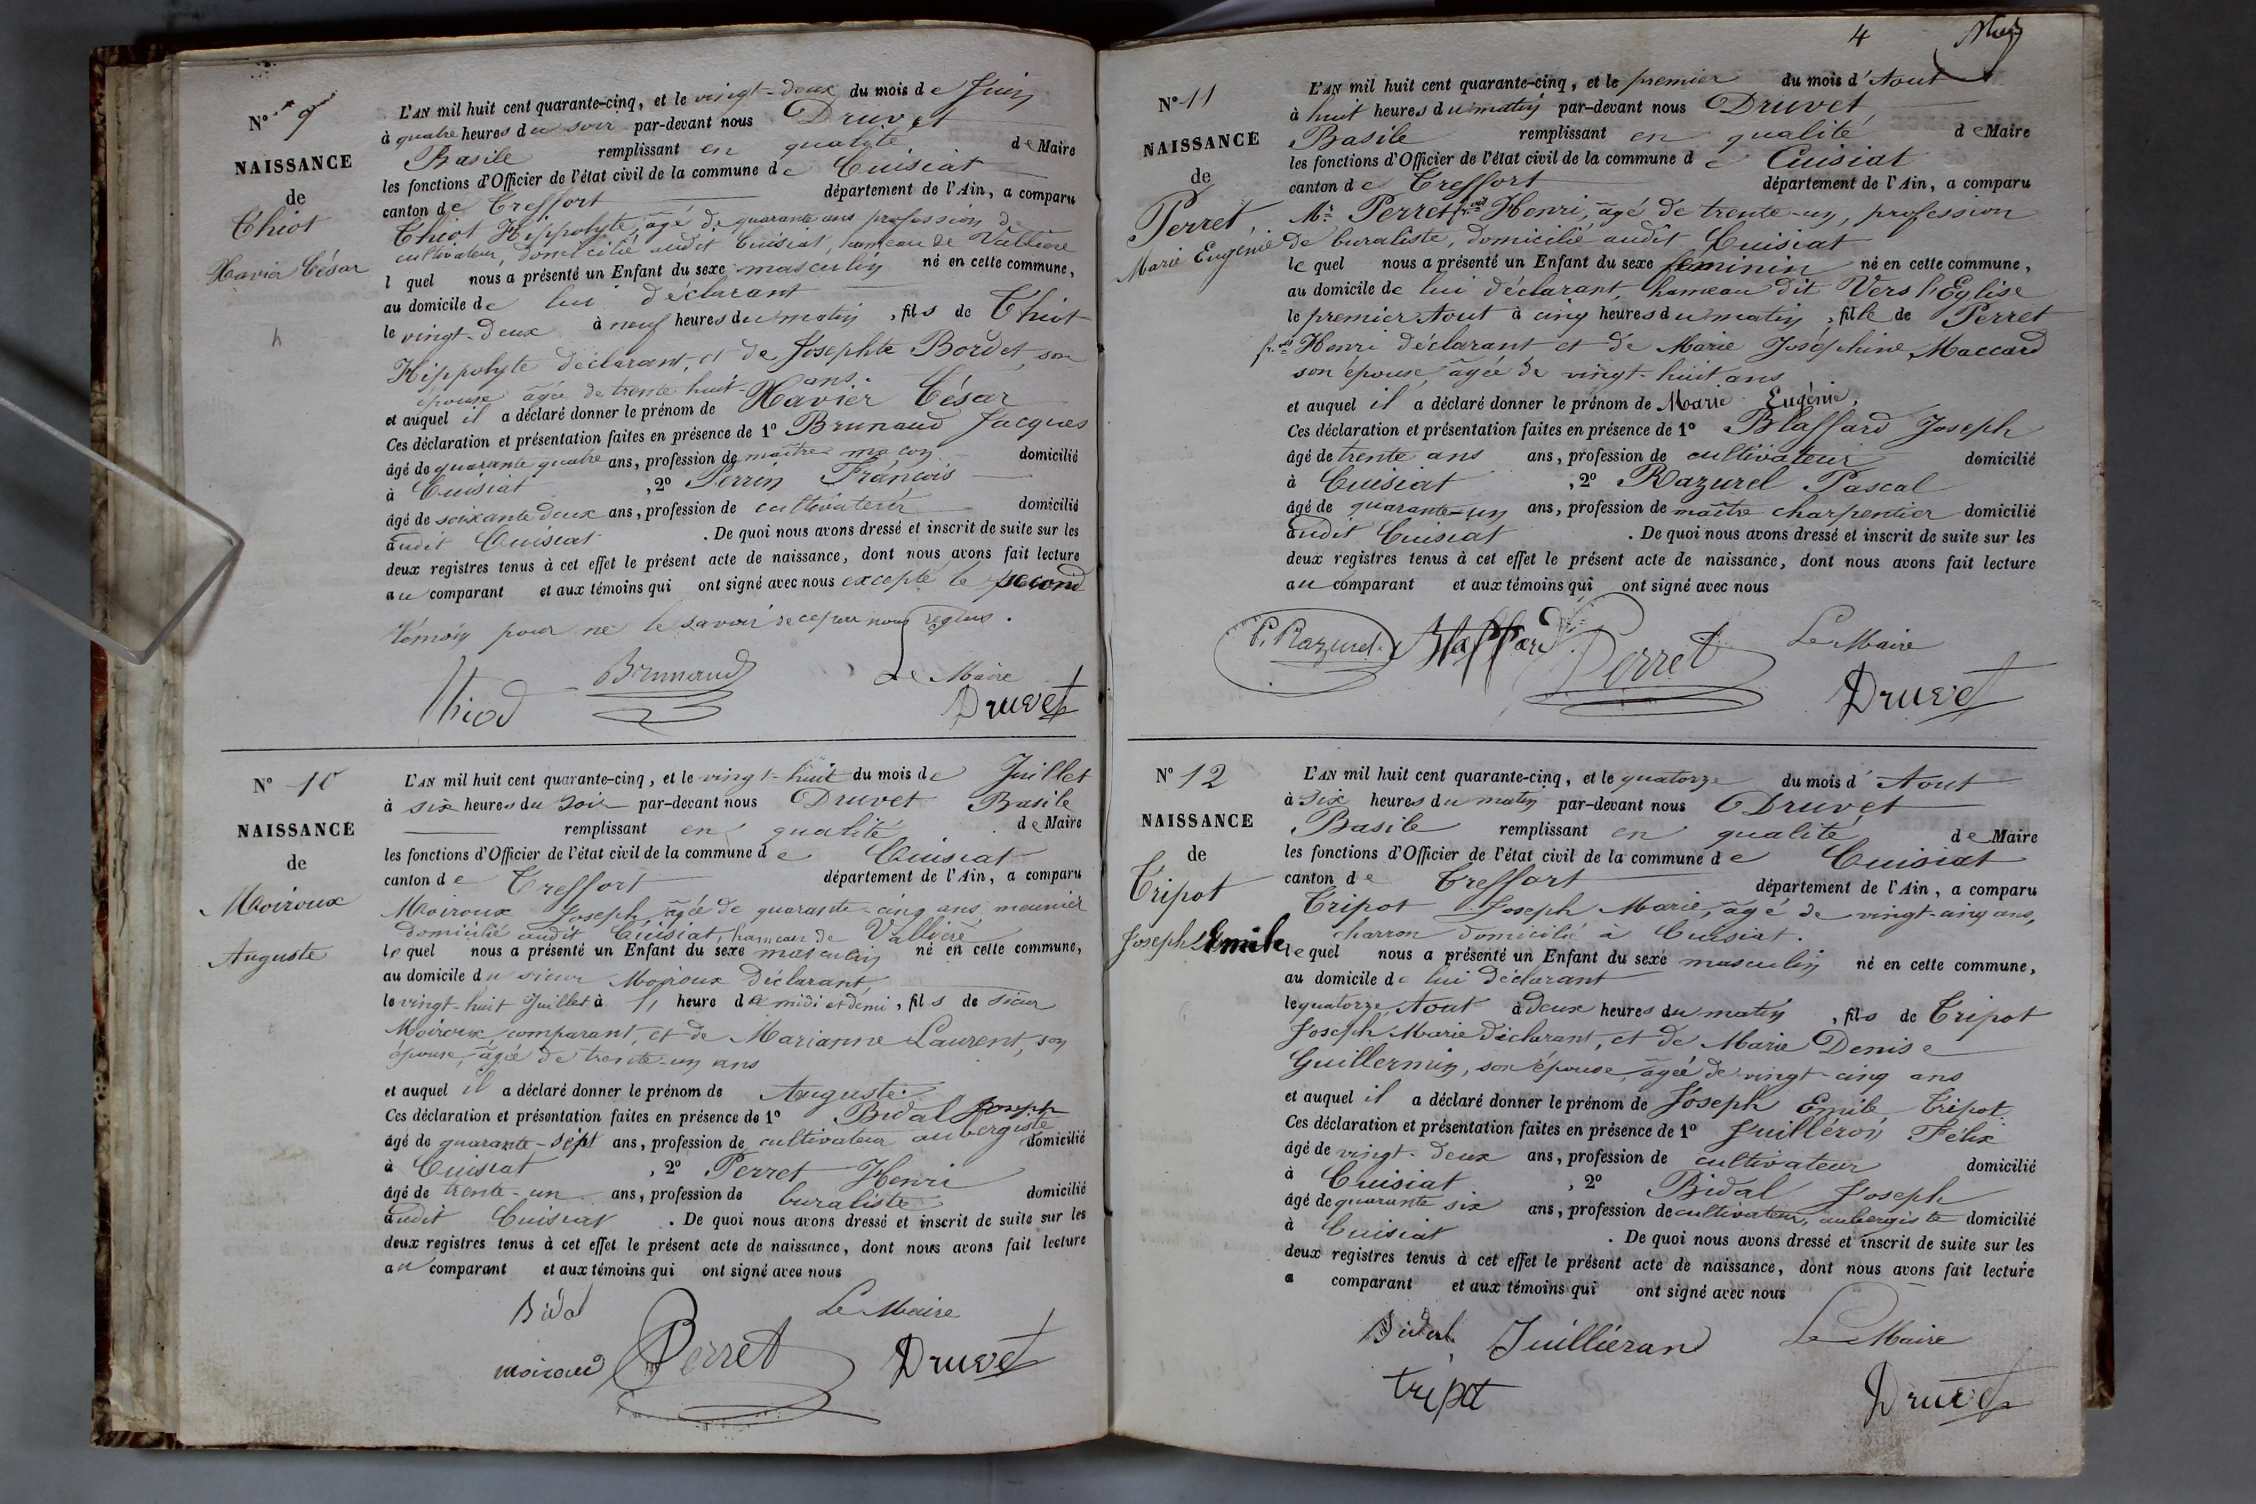 N° 9
NAISSANCE
de
Thiot
Xavier César
L'AN mil huit cent quarante-cinq, et le vingt-deux du mois de Juin
à quatre heures du soir par-devant nous Druvet
Basile remplissant en qualité de Maire
les fonctions d'Officier de l'état civil de la commune de Cuisiat
canton de Treffort département de l'Ain, a comparu
Thiot Hippolyte, agé de quarante ans profession de
cultivateur, domicilié audit Cuisiat, hameau de Vallière
lequel nous a présenté un Enfant du sexe masculin né en cette commune,
au domicile de lui déclarant
le vingt-deux à neuf heures du matin, fils de Thiot
Hippolyte déclarant, et de Josephte Bordet, son
épouse agée de trente huit ans.
et auquel il a déclaré donner le prénom de Xavier César
Ces déclaration et présentation faites en présence de 1° Brunaud Jacques
âgé de quarante quatre ans, profession de maître maçon domicilié
à Cuisiat, 2° Perrin François
âgé de soixante deux ans, profession de cultivateur domicilié
audit Cuisiat. De quoi nous avons dressé et inscrit de suite sur les
deux registres tenus à cet effet le présent acte de naissance, dont nous avons fait lecture
au comparant et aux témoins qui ont signé avec nous excepté le second
témoin pour ne le savoir de ce par nous requis.
Thiod Brunaud Le Maire
Druvet
N° 10
NAISSANCE
de
Moiroux
Auguste
L'AN mil huit cent quarante-cinq, et le vingt-huit du mois de Juillet
à six heures du soir par-devant nous Druvet Basile
remplissant en qualité de Maire
les fonctions d'Officier de l'état civil de la commune de Cuisiat
canton de Treffort département de l'Ain, a comparu
Moiroux Joseph, agé de quarante-cinq ans, meunier
domicilié audit Cuisiat, hameau de Vallière
lequel nous a présenté un Enfant du sexe masculin né en cette commune,
au domicile du sieur Moiroux déclarant,
le vingt-huit Juillet à heure de midi et demi, fils de sieur
Moiroux, comparant, et de Marianne Laurent, son
épouse, agée de trente-un ans
et auquel il a déclaré donner le prénom de Auguste.
Ces déclaration et présentation faites en présence de 1° Bidal Joseph
âgé de quarante-sept ans, profession de cultivateur aubergiste domicilié
à Cuisiat, 2° Perret Henri
âgé de trente-un ans, profession de buraliste domicilié
audit Cuisiat. De quoi nous avons dressé et inscrit de suite sur les
deux registres tenus à cet effet le présent acte de naissance, dont nous avons fait lecture
au comparant et aux témoins qui ont signé avec nous
Bidal Le Maire
moiroud Perret Druvet
4
N° 11
NAISSANCE
de
Perret
Marie Eugénie
L'AN mil huit cent quarante-cinq, et le premier du mois d'Aout
à huit heures du matin par-devant nous Druvet
Basile remplissant en qualité de Maire
les fonctions d'Officier de l'état civil de la commune de Cuisiat
canton de Treffort département de l'Ain, a comparu
Mr Perret Henri, agé de trente-un, profession
de buraliste, domicilié audit Cuisiat
lequel nous a présenté un Enfant du sexe féminin né en cette commune,
au domicile de lui déclarant, hameau dit Vers l'Eglise
le premier Aout à cinq heures du matin, fille de Perret
Henri déclarant et de Marie Joséphine Maccard
son épouse, agée de vingt-huit ans
et auquel il a déclaré donner le prénom de Marie Eugénie.
Ces déclaration et présentation faites en présence de 1° Blaffard Joseph
âgé de trente ans ans, profession de cultivateur domicilié
à Cuisiat, 2° Razurel Pascal
âgé de quarante-un ans, profession de maître charpentier domicilié
audit Cuisiat. De quoi nous avons dressé et inscrit de suite sur les
deux registres tenus à cet effet le présent acte de naissance, dont nous avons fait lecture
au comparant et aux témoins qui ont signé avec nous
P. Razurel. Blaffard Perret Le Maire
Druvet
N° 12
NAISSANCE
de
Tripot
Joseph Emile
L'AN mil huit cent quarante-cinq, et le quatorze du mois d'Aout
à six heures du matin par-devant nous Druvet
Basile remplissant en qualité de Maire
les fonctions d'Officier de l'état civil de la commune de Cuisiat
canton de Treffort département de l'Ain, a comparu
Tripot Joseph Marie, agé de vingt-cinq ans,
charron domicilié à Cuisiat.
lequel nous a présenté un Enfant du sexe masculin né en cette commune,
au domicile de lui déclarant
le quatorze Aout à deux heures du matin, fils de Tripot
Joseph Marie déclarant, et de Marie Denise
Guillermin, son épouse, agée de vingt-cinq ans
et auquel il a déclaré donner le prénom de Joseph Emile Tripot.
Ces déclaration et présentation faites en présence de 1° Juilléron Félix
âgé de vingt-deux ans, profession de cultivateur domicilié
à Cuisiat, 2° Bidal Joseph
âgé de quarante six ans, profession de cultivateur, aubergiste domicilié
à Cuisiat. De quoi nous avons dressé et inscrit de suite sur les
deux registres tenus à cet effet le présent acte de naissance, dont nous avons fait lecture
a comparant et aux témoins qui ont signé avec nous
Bidal Juilliéran Le Maire
tripot Druvet